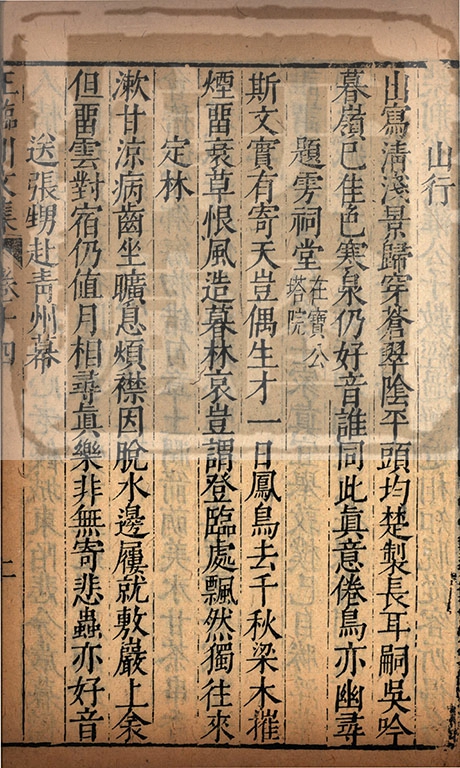 山行
出寫清淺景歸穿蒼翠陰平頭均楚製長耳嗣吳吟
暮嶺已佳色寒泉仍好音誰同此眞意倦鳥亦幽尋
題雱祠堂 在寶公塔院
斯文實有寄天豈偶生才一日鳳鳥去千秋梁木摧
煙畱衰草恨風造暮林哀豈謂登臨處飄然獨往來
定林
漱甘涼病齒坐曠息煩襟因脫水邊屨就敷巖上衾
但畱雲對宿仍值月相尋眞樂非無寄悲蟲亦好音
送張甥赴青州幕
王臨川文集 卷十四 二